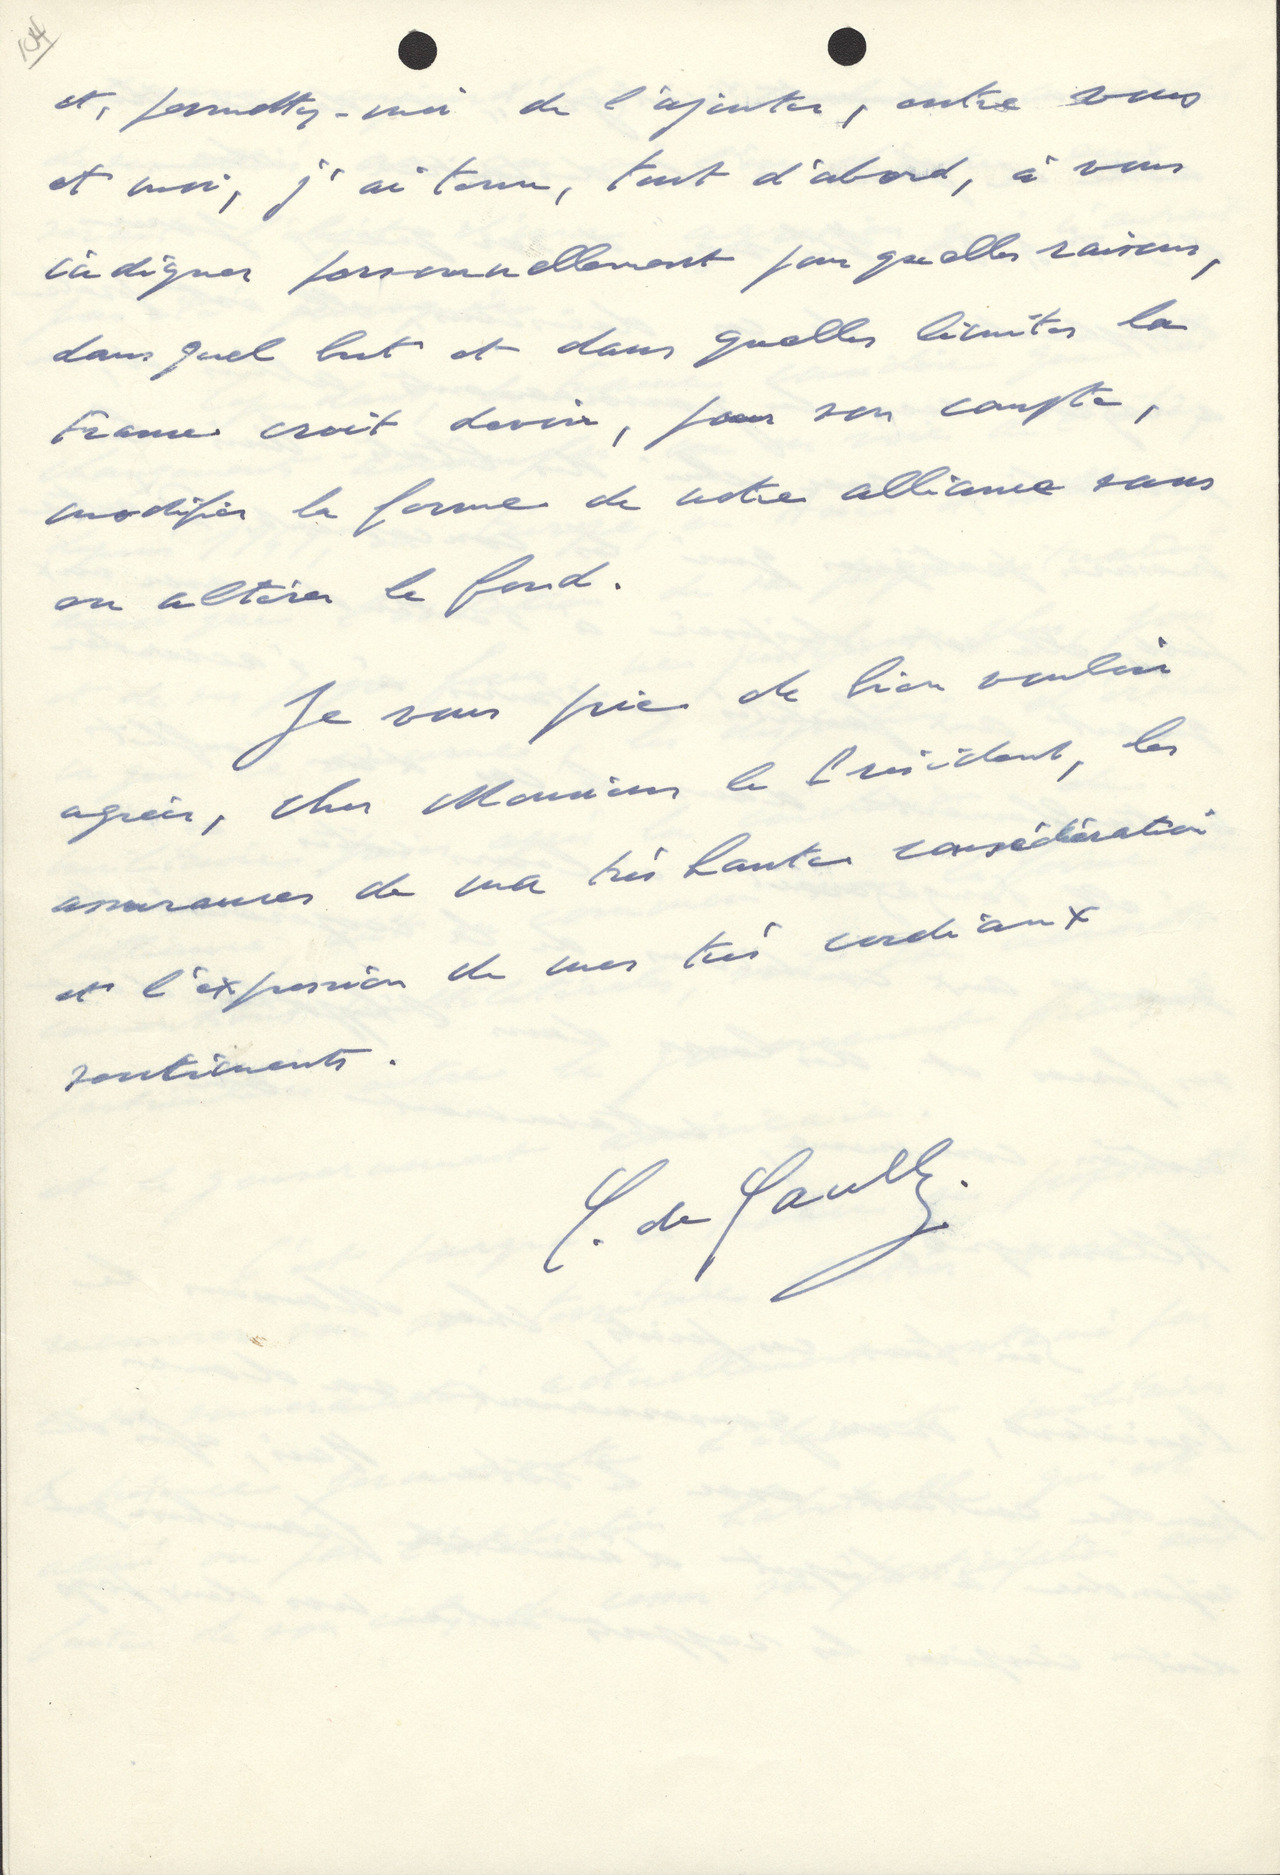 104
et, permettez-moi de l'ajouter, entre vous
et moi, j'ai tenu, tout d'abord, à vous
indiquer personnellement pour quelles raisons,
dans quel but et dans quelles limites la
France croit devoir, pour son compte,
modifier la forme de notre alliance sans
en altérer le fond.
Je vous prie de bien vouloir
agréer, cher Monsieur le Président, les
assurances de ma très haute considération
et l'expression de mes très cordiaux
sentiments.
C. de Gaulle.